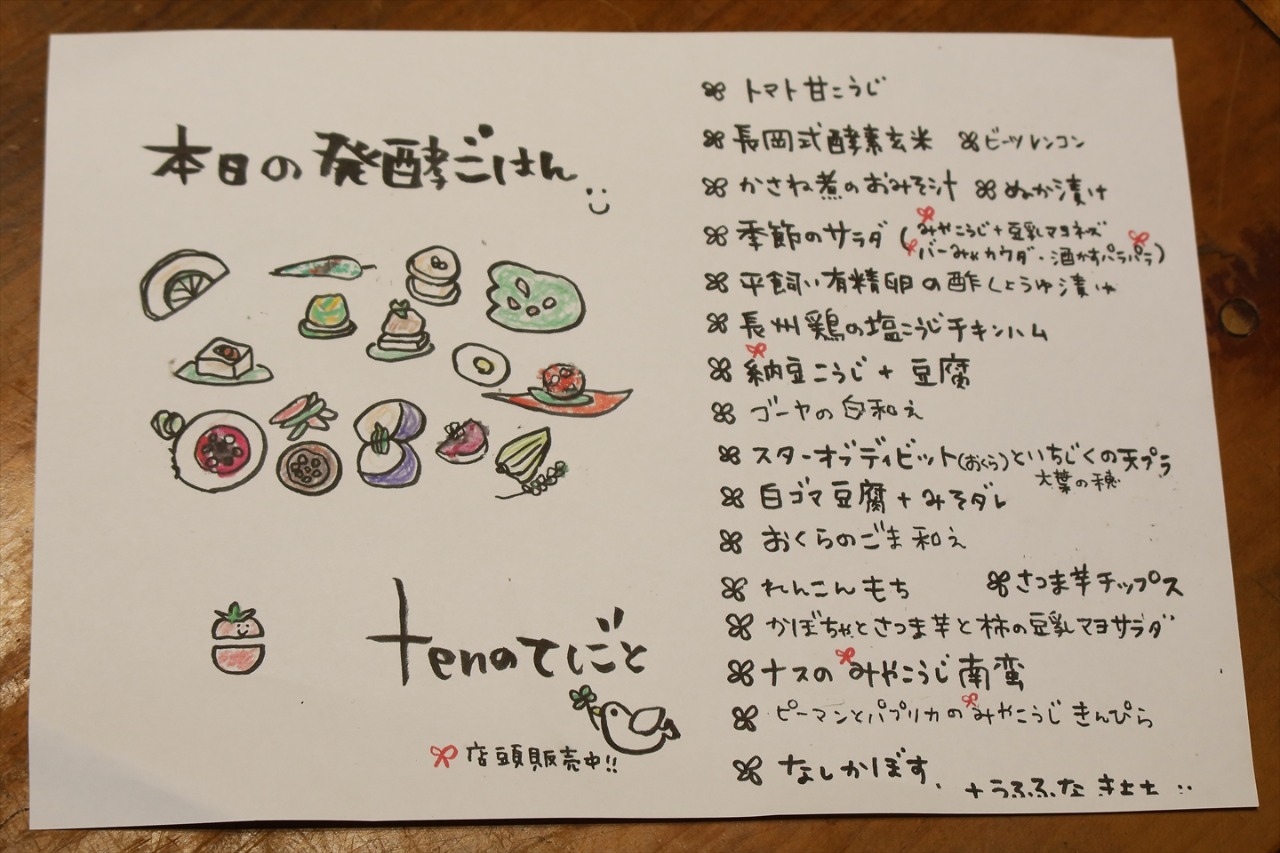 本日の発酵ごはん
tenのてしごと
店頭販売中!!
トマト甘こうじ
長岡式酵素玄米 ビーツレンコン
かさね煮のおみそ汁 ぬか漬け
季節のサラダ (みやこうじ+豆乳マヨネーズ
バーニャカウダ・酒かすパラパラ)
平飼い有精卵の酢しょうゆ漬け
長州鶏の塩こうじチキンハム
納豆こうじ + 豆腐
ゴーヤの白和え
スターオブディビット(おくら)といちじくの天プラ
大葉の穂
白ゴマ豆腐+みそダレ
おくらのごま和え
れんこんもち さつま芋チップス
かぼちゃとさつま芋と柿の豆乳マヨサラダ
ナスのみやこうじ南蛮
ピーマンとパプリカのみやこうじきんぴら
なしかぼす、
+うふふなきもち